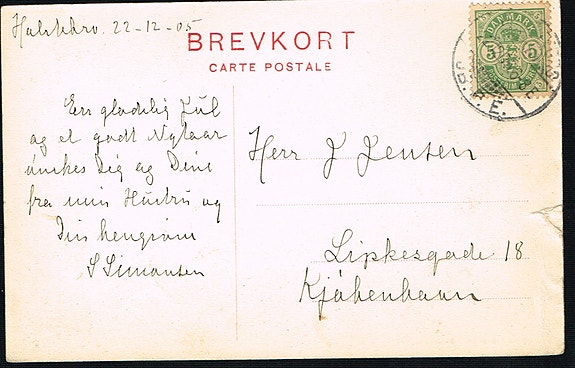 Holstebro. 22-12-05
BREVKORT
CARTE POSTALE
DANMARK
5 5
En glædelig Jul
og et godt Nytaar
ønskes Dig og Dine
fra min Hustru og
Din hengivne
S Simonsen
Herr J Jensen
Lipkesgade 18
Kjøbenhavn